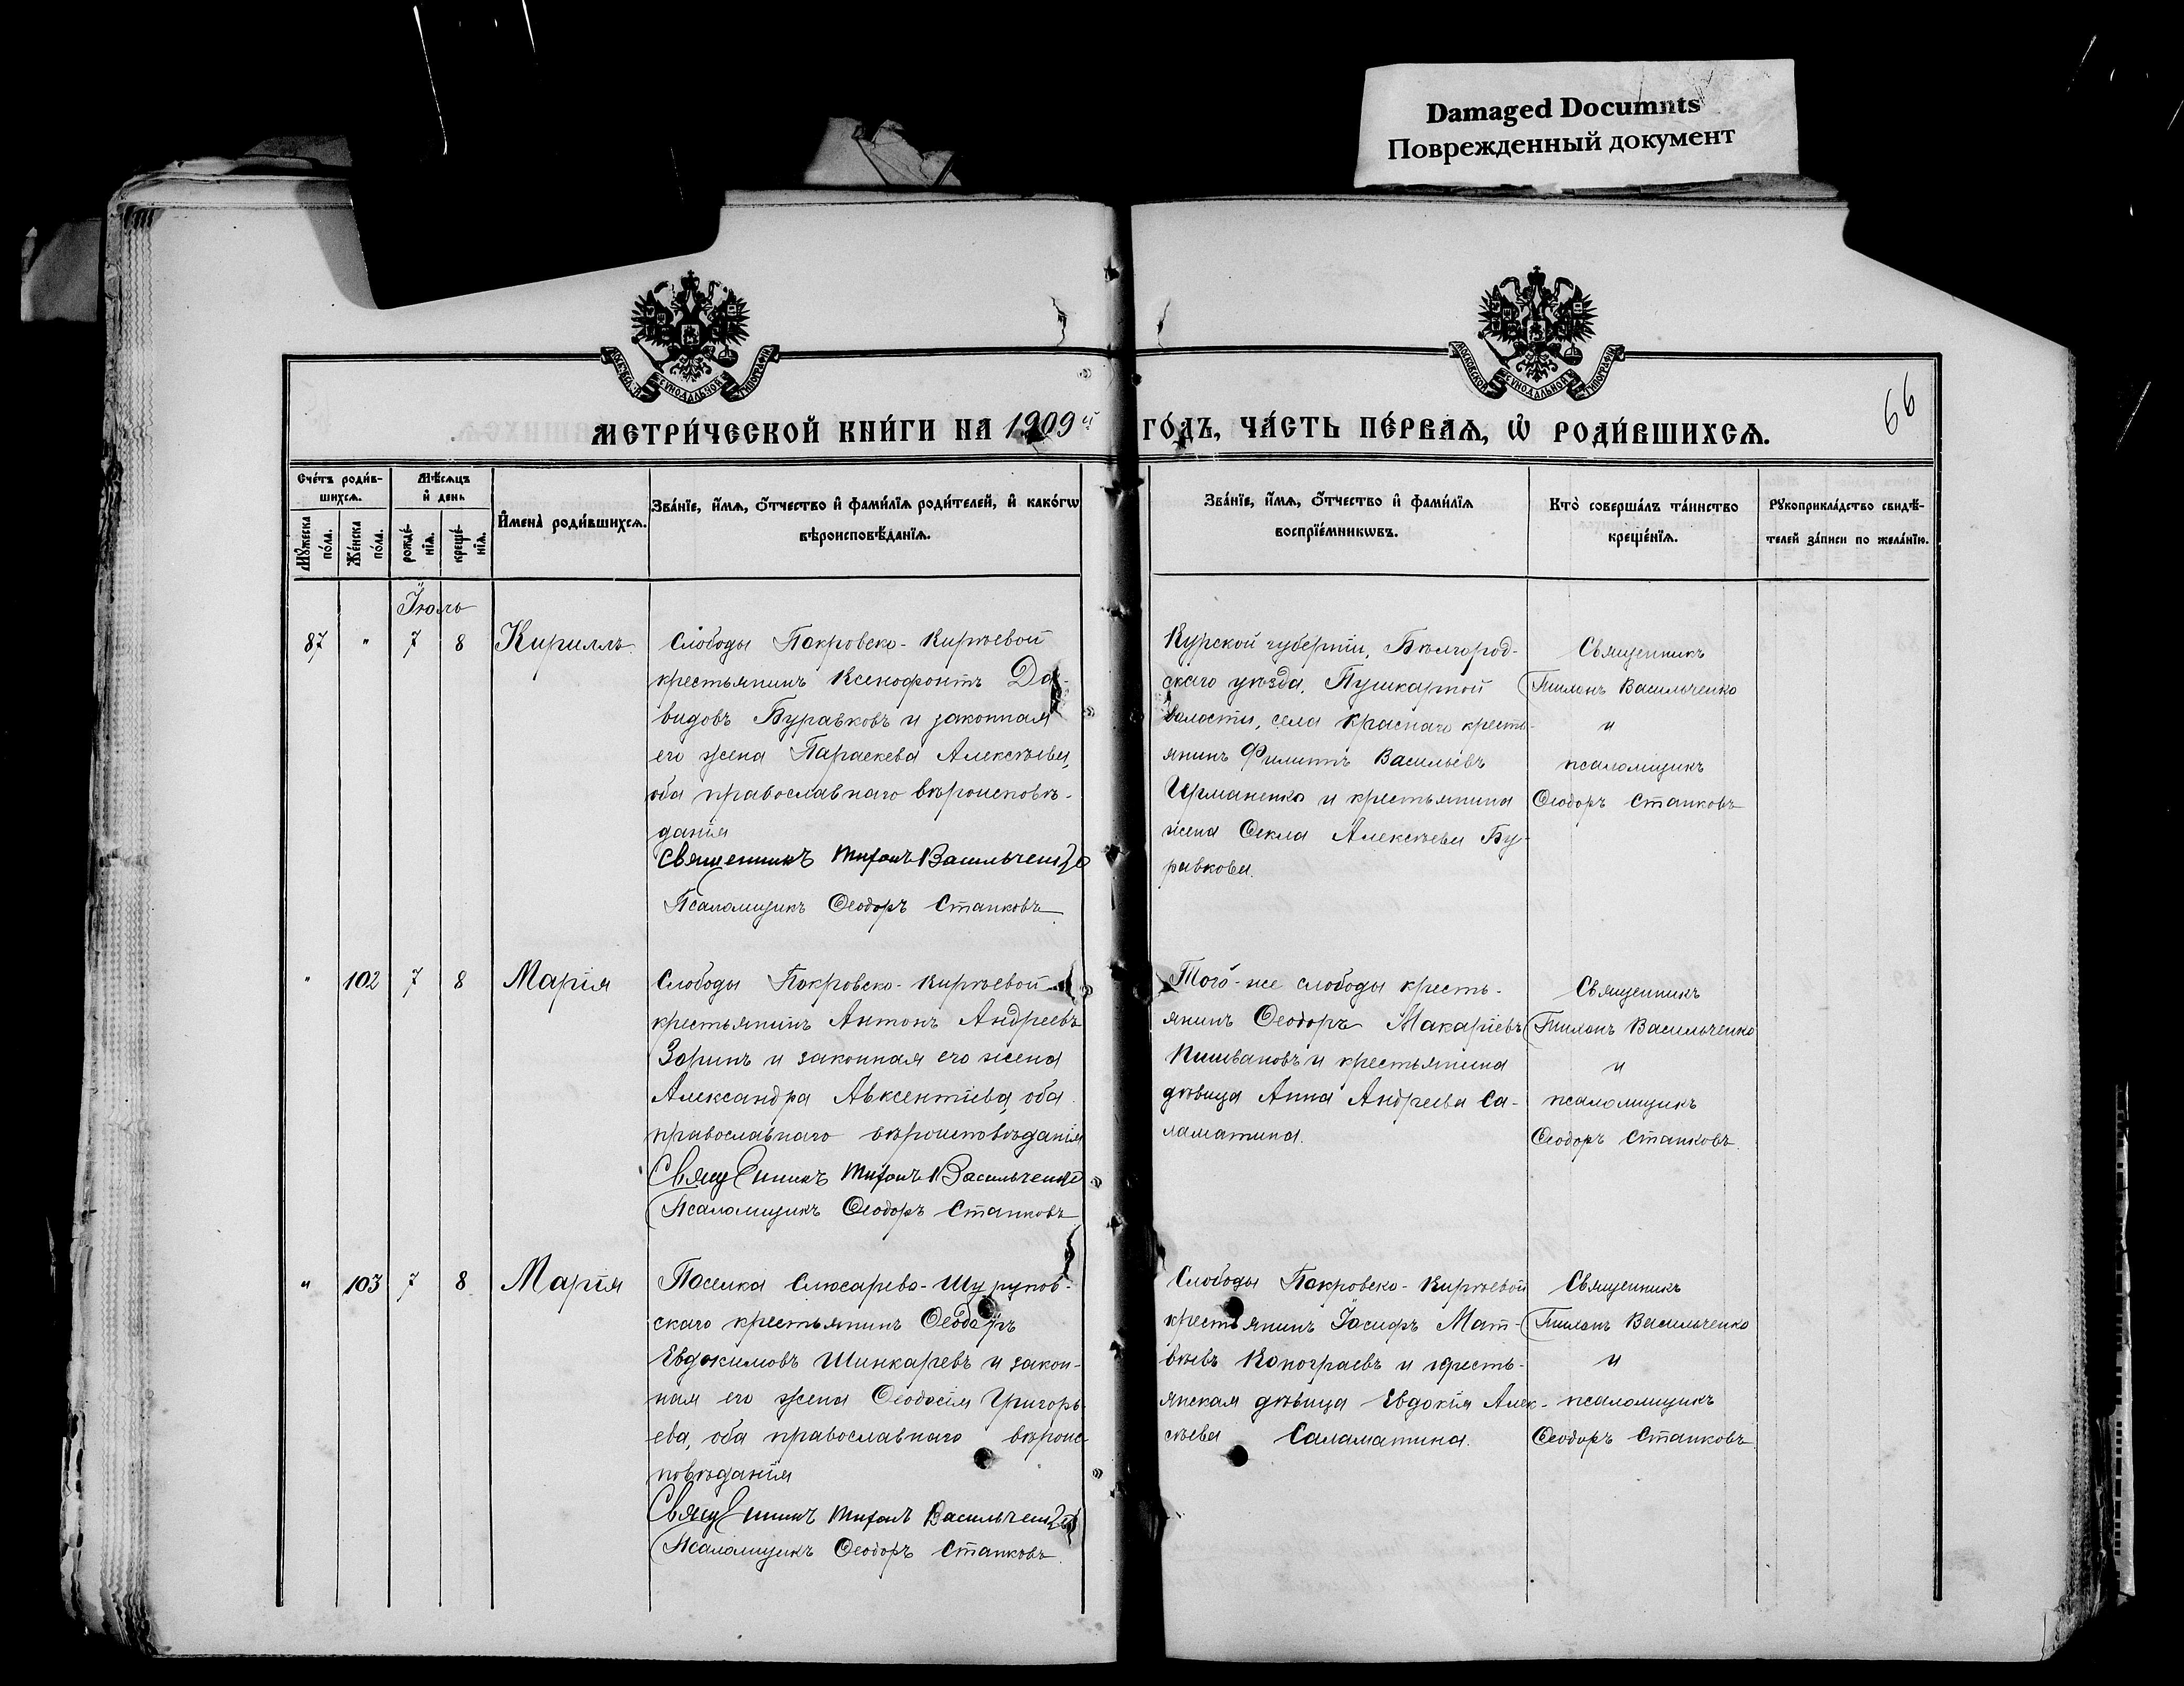 Damaged Documnts
Поврежденный документ
МОСКОВСКОЙ СѴНОДАЛЬНОЙ ТИПОГРАФІИ
МОСКОВСКОЙ СѴНОДАЛЬНОЙ ТИПОГРАФІИ
66
МЕТРИ́ЧЕСКОЙ КНИ́ГИ НА 1909й ГО́ДЪ, ЧА́СТЬ ПЕ́РВАѦ, Ѡ҆ РОДИ́ВШИХСѦ.
Сче́тъ роди́в-
шихсѧ.
Мꙋ́жеска по́ла.
Же́нска по́ла.
Мѣ́сѧцъ
и҆ день
рожде́-
нїѧ.
креще́-
нїѧ.
И҆мена̀ роди́вшихсѧ.
Зва́нїе, и҆́мѧ, ѻ҆́тчество и҆ фами́лїѧ роди́телей, и҆ како́гѡ
вѣроисповѣ́данїѧ.
Зва́нїе, и҆́мѧ, ѻ҆́тчество и҆ фами́лїѧ
воспрїе́мникѡвъ.
Кто̀ соверша́лъ та́инство
креще́нїѧ.
Рꙋкоприкла́дство свидѣ́-
телей за́писи по жела́нїю.
Іюль
87 " 7 8 Кириллъ
Слободы Покровско-Кирѣевой
крестьянинъ Ксенофонтъ Да-
видовъ Буравковъ и законная
его жена Параскева Алексѣева,
оба православнаго вѣроисповѣ-
данія
Священникъ Тихонъ Васильченко
Псаломщикъ Ѳеодоръ Станковъ
Курской губерніи, Бѣлгород-
скаго уѣзда, Пушкарной
волости, села Краснаго кресть-
янинъ Филиппъ Васильевъ
Ирманенко и крестьянина
жена Ѳекла Алексѣева Бу-
равкова.
Священникъ
Тихонъ Васильченко
и
псаломщикъ
Ѳеодоръ Станковъ
" 102 7 8 Марія
Слободы Покровско-Кирѣевой
крестьянинъ Антонъ Андреевъ
Зоринъ и законная его жена
Александра Авксентіева, оба
православнаго вѣроисповѣданія
Священникъ Тихонъ Васильченко
Псаломщикъ Ѳеодоръ Станковъ
Того-же слободы кресть-
янинъ Ѳеодоръ Макаріевъ
Пишвановъ и крестьянина
дѣвица Анна Андреева Са-
ламатина.
Священникъ
Тихонъ Васильченко
и
псаломщикъ
Ѳеодоръ Станковъ.
" 103 7 8 Марія
Поселка Слюсарево-Шурупов-
скаго крестьянинъ Ѳеодоръ
Евдокимовъ Шинкаревъ и закон-
ная его жена Ѳеодосія Григорь-
ева, оба православнаго вѣроис-
повѣданія
Священникъ Тихонъ Васильченко
Псаломщикъ Ѳеодоръ Станковъ.
Слободы Покровско-Кирѣевой
крестьянинъ Іосифъ Мат-
вѣевъ Коногpaевъ и кресть-
янская дѣвица Евдокія Алек-
сѣева Саламатина.
Священникъ
Тихонъ Васильченко
и
псаломщикъ
Ѳеодоръ Станковъ.